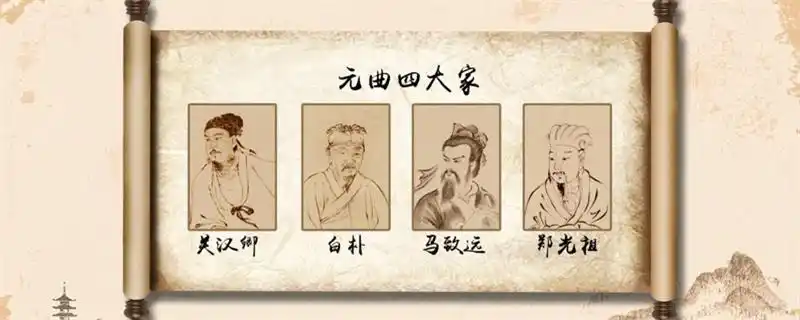 元曲四大家
关汉卿 白朴 马致远 郑光祖